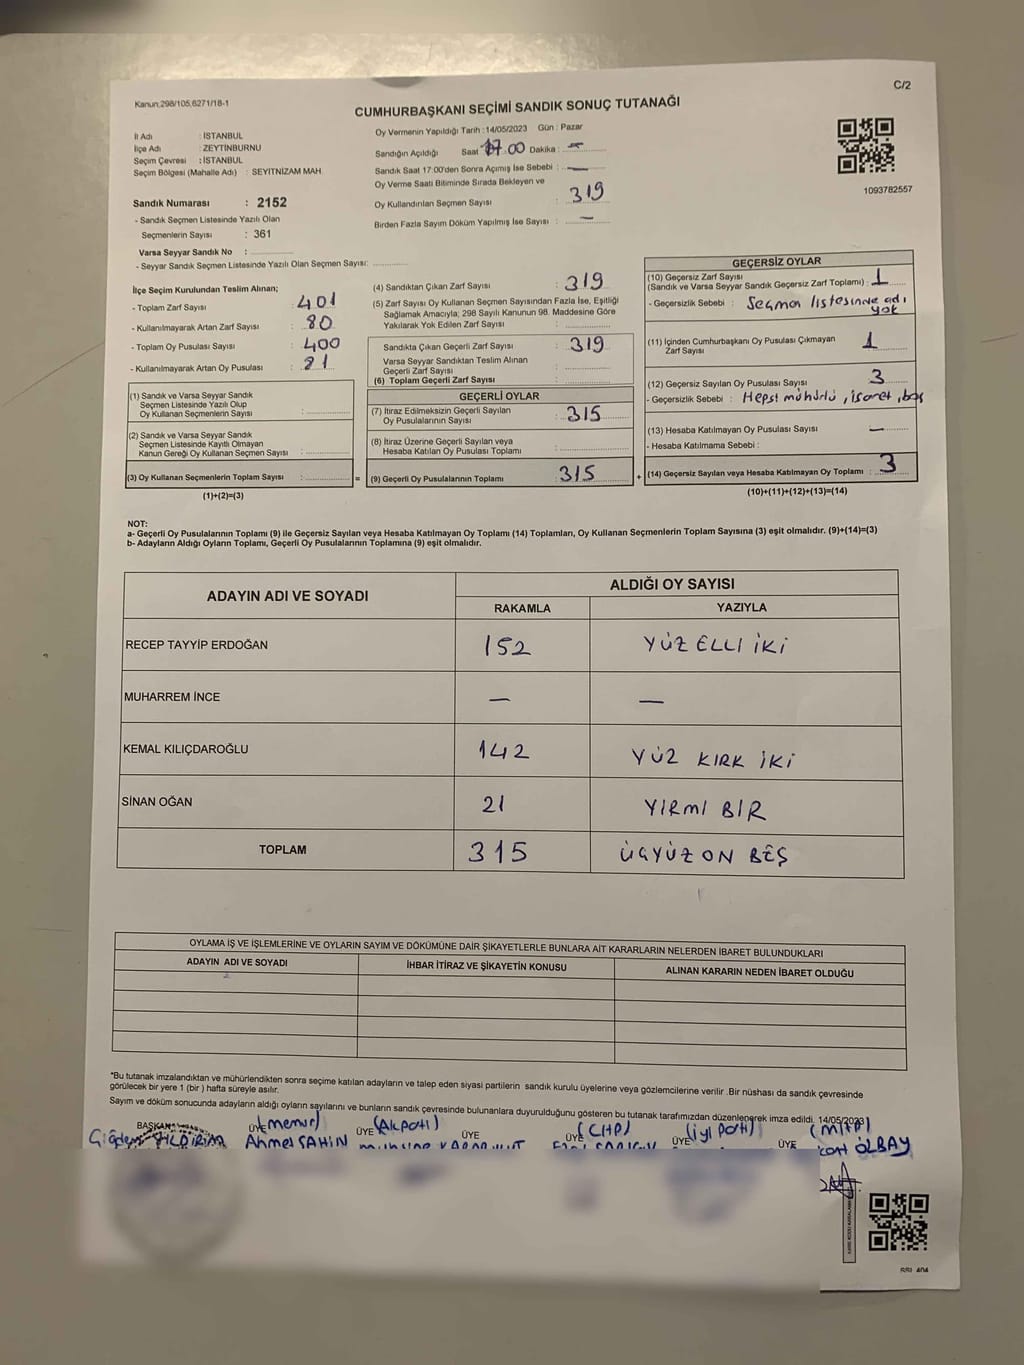 Kanun:298/105,6271/18-1
C/2
CUMHURBAŞKANI SEÇİMİ SANDIK SONUÇ TUTANAĞI
İl Adı : İSTANBUL
İlçe Adı : ZEYTİNBURNU
Seçim Çevresi : İSTANBUL
Seçim Bölgesi (Mahalle Adı) : SEYİTNİZAM MAH.
Oy Vermenin Yapıldığı Tarih : 14/05/2023 Gün : Pazar
Sandığın Açıldığı Saat 17.00 Dakika : —
Sandık Saat 17:00'den Sonra Açımış İse Sebebi : —
Oy Verme Saati Bitiminde Sırada Bekleyen ve
Oy Kullandırılan Seçmen Sayısı : 319
Birden Fazla Sayım Döküm Yapılmış İse Sayısı : —
1093782557
Sandık Numarası : 2152
- Sandık Seçmen Listesinde Yazılı Olan
Seçmenlerin Sayısı : 361
Varsa Seyyar Sandık No :
- Seyyar Sandık Seçmen Listesinde Yazılı Olan Seçmen Sayısı:
İlçe Seçim Kurulundan Teslim Alınan;
- Toplam Zarf Sayısı : 401
- Kullanılmayarak Artan Zarf Sayısı : 80
- Toplam Oy Pusulası Sayısı : 400
- Kullanılmayarak Artan Oy Pusulası : 81
(1) Sandık ve Varsa Seyyar Sandık
Seçmen Listesinde Yazılı Olup
Oy Kullanan Seçmenlerin Sayısı :
(2) Sandık ve Varsa Seyyar Sandık
Seçmen Listesinde Kayıtlı Olmayan
Kanun Gereği Oy Kullanan Seçmen Sayısı :
(3) Oy Kullanan Seçmenlerin Toplam Sayısı : =
(1)+(2)=(3)
(4) Sandıktan Çıkan Zarf Sayısı : 319
(5) Zarf Sayısı Oy Kullanan Seçmen Sayısından Fazla İse, Eşitliği
Sağlamak Amacıyla; 298 Sayılı Kanunun 98. Maddesine Göre
Yakılarak Yok Edilen Zarf Sayısı :
Sandıkta Çıkan Geçerli Zarf Sayısı : 319
Varsa Seyyar Sandıktan Teslim Alınan
Geçerli Zarf Sayısı :
(6) Toplam Geçerli Zarf Sayısı :
GEÇERLİ OYLAR
(7) İtiraz Edilmeksizin Geçerli Sayılan
Oy Pusulalarının Sayısı : 315
(8) İtiraz Üzerine Geçerli Sayılan veya
Hesaba Katılan Oy Pusulası Toplamı :
(9) Geçerli Oy Pusulalarının Toplamı : 315 +
GEÇERSİZ OYLAR
(10) Geçersiz Zarf Sayısı
(Sandık ve Varsa Seyyar Sandık Geçersiz Zarf Toplamı) : 1
- Geçersizlik Sebebi : Seçmen listesinde adı
yok
(11) İçinden Cumhurbaşkanı Oy Pusulası Çıkmayan
Zarf Sayısı : 1
(12) Geçersiz Sayılan Oy Pusulası Sayısı : 3
- Geçersizlik Sebebi : Hepsi mühürlü, işaret, boş
(13) Hesaba Katılmayan Oy Pusulası Sayısı : —
- Hesaba Katılmama Sebebi :
(14) Geçersiz Sayılan veya Hesaba Katılmayan Oy Toplamı : 3
(10)+(11)+(12)+(13)=(14)
NOT:
a- Geçerli Oy Pusulalarının Toplamı (9) ile Geçersiz Sayılan veya Hesaba Katılmayan Oy Toplamı (14) Toplamları, Oy Kullanan Seçmenlerin Toplam Sayısına (3) eşit olmalıdır. (9)+(14)=(3)
b- Adayların Aldığı Oyların Toplamı, Geçerli Oy Pusulalarının Toplamına (9) eşit olmalıdır.
ADAYIN ADI VE SOYADI
ALDIĞI OY SAYISI
RAKAMLA YAZIYLA
RECEP TAYYİP ERDOĞAN 152 YÜZ ELLİ İKİ
MUHARREM İNCE — —
KEMAL KILIÇDAROĞLU 142 YÜZ KIRK İKİ
SİNAN OĞAN 21 YİRMİ BİR
TOPLAM 315 ÜÇYÜZ ON BEŞ
OYLAMA İŞ VE İŞLEMLERİNE VE OYLARIN SAYIM VE DÖKÜMÜNE DAİR ŞİKAYETLERLE BUNLARA AİT KARARLARIN NELERDEN İBARET BULUNDUKLARI
ADAYIN ADI VE SOYADI İHBAR İTİRAZ VE ŞİKAYETİN KONUSU ALINAN KARARIN NEDEN İBARET OLDUĞU
*Bu tutanak imzalandıktan ve mühürlendikten sonra seçime katılan adayların ve talep eden siyasi partilerin sandık kurulu üyelerine veya gözlemcilerine verilir .Bir nüshası da sandık çevresinde
görülecek bir yere 1 (bir ) hafta süreyle asılır.
Sayım ve döküm sonucunda adayların aldığı oyların sayılarını ve bunların sandık çevresinde bulunanlara duyurulduğunu gösteren bu tutanak tarafımızdan düzenlenerek imza edildi. 14/05/2023
BAŞKAN ÜYE (memur) ÜYE (AKPARTİ) ÜYE ÜYE (CHP) ÜYE (iyi parti) ÜYE (MHP)
Çiğdem YILDIRIM Ahmet SAHİN ÖLBAY